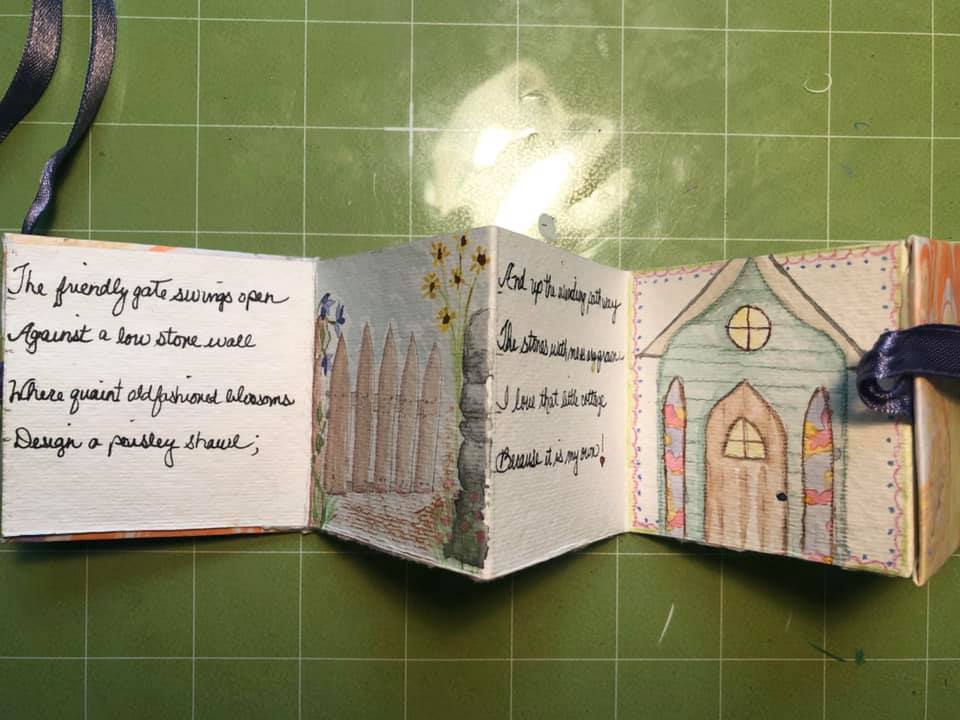 The friendly gate swings open
Against a low stone wall
Where quaint oldfashioned blossoms
Design a paisley shawl;
And up the winding pathway
The stones with moss
I love that little cottage
Because it is my own!